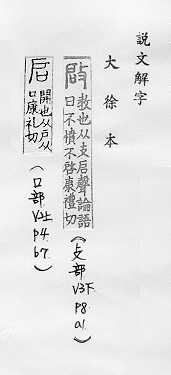 説文解字
大徐本
啟
教也从攴启聲論語
曰不憤不啓康禮切
(攴部
V3下
P8
a1.)
启
開也从戶从
口康礼切
(口部
V2上
P4
b7.)